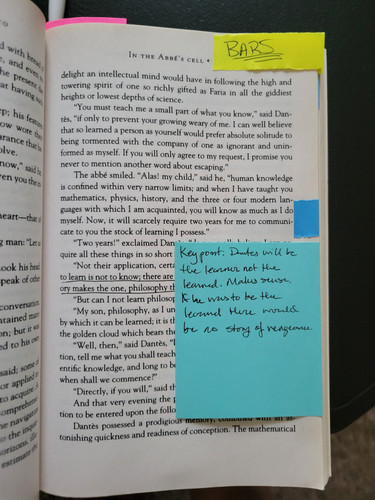 IN THE ABBÉ'S CELL •
BARS
delight an intellectual mind would have in following the high and
towering spirit of one so richly gifted as Faria in all the giddiest
heights or lowest depths of science.
"You must teach me a small part of what you know," said Dan-
tès, "if only to prevent your growing weary of me. I can well believe
that so learned a person as yourself would prefer absolute solitude to
being tormented with the company of one as ignorant and unin-
formed as myself. If you will only agree to my request, I promise you
never to mention another word about escaping."
The abbé smiled. "Alas! my child," said he, "human knowledge
is confined within very narrow limits; and when I have taught you
mathematics, physics, history, and the three or four modern lan-
guages with which I am acquainted, you will know as much as I do
myself. Now, it will scarcely require two years for me to communi-
cate to you the stock of learning I possess."
"Two years!" exclaimed Dantès
quire all these things in so short
"Not their application, certa
to learn is not to know; there are
ory makes the one, philosophy th
"But can I not learn philosop
"My son, philosophy, as I un
by which it can be learned; it is th
the golden cloud which bears the
"Well, then," said Dantès, "
tion, tell me what you shall teach
entific knowledge, and long to b
when shall we commence?"
"Directly, if you will," said th
And that very evening the p
tion to be entered upon the follo
Dantès possessed a prodigious memory, combined with an as-
tonishing quickness and readiness of conception. The mathematical
Key point: Dantes will be
the learner not the
learned. Makes sense,
if he was to be the
learned there would
be no story of vengeance.